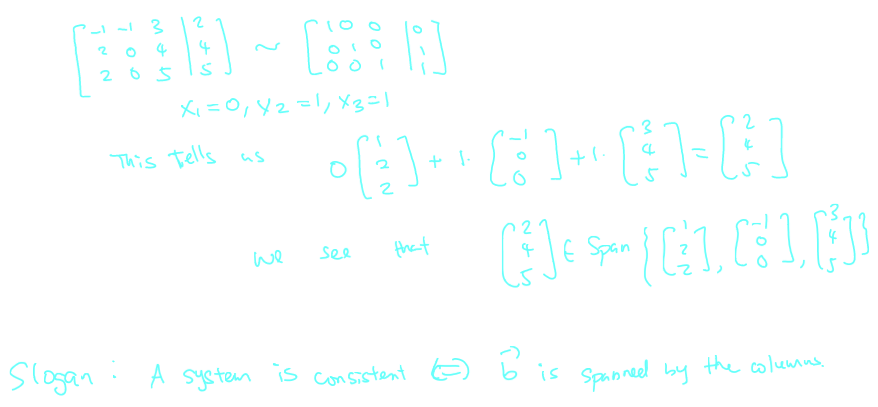 [-1 -1 3 | 2; 2 0 4 | 4; 2 0 5 | 5] ~ [1 0 0 | 0; 0 1 0 | 1; 0 0 1 | 1]
x₁=0, x₂=1, x₃=1
This tells us 0[1; 2; 2] + 1·[-1; 0; 0] + 1·[3; 4; 5] = [2; 4; 5]
We see that [2; 4; 5] ∈ Span{[1; 2; 2], [-1; 0; 0], [3; 4; 5]}
Slogan: A system is consistent ⇔ b⃗ is spanned by the columns.